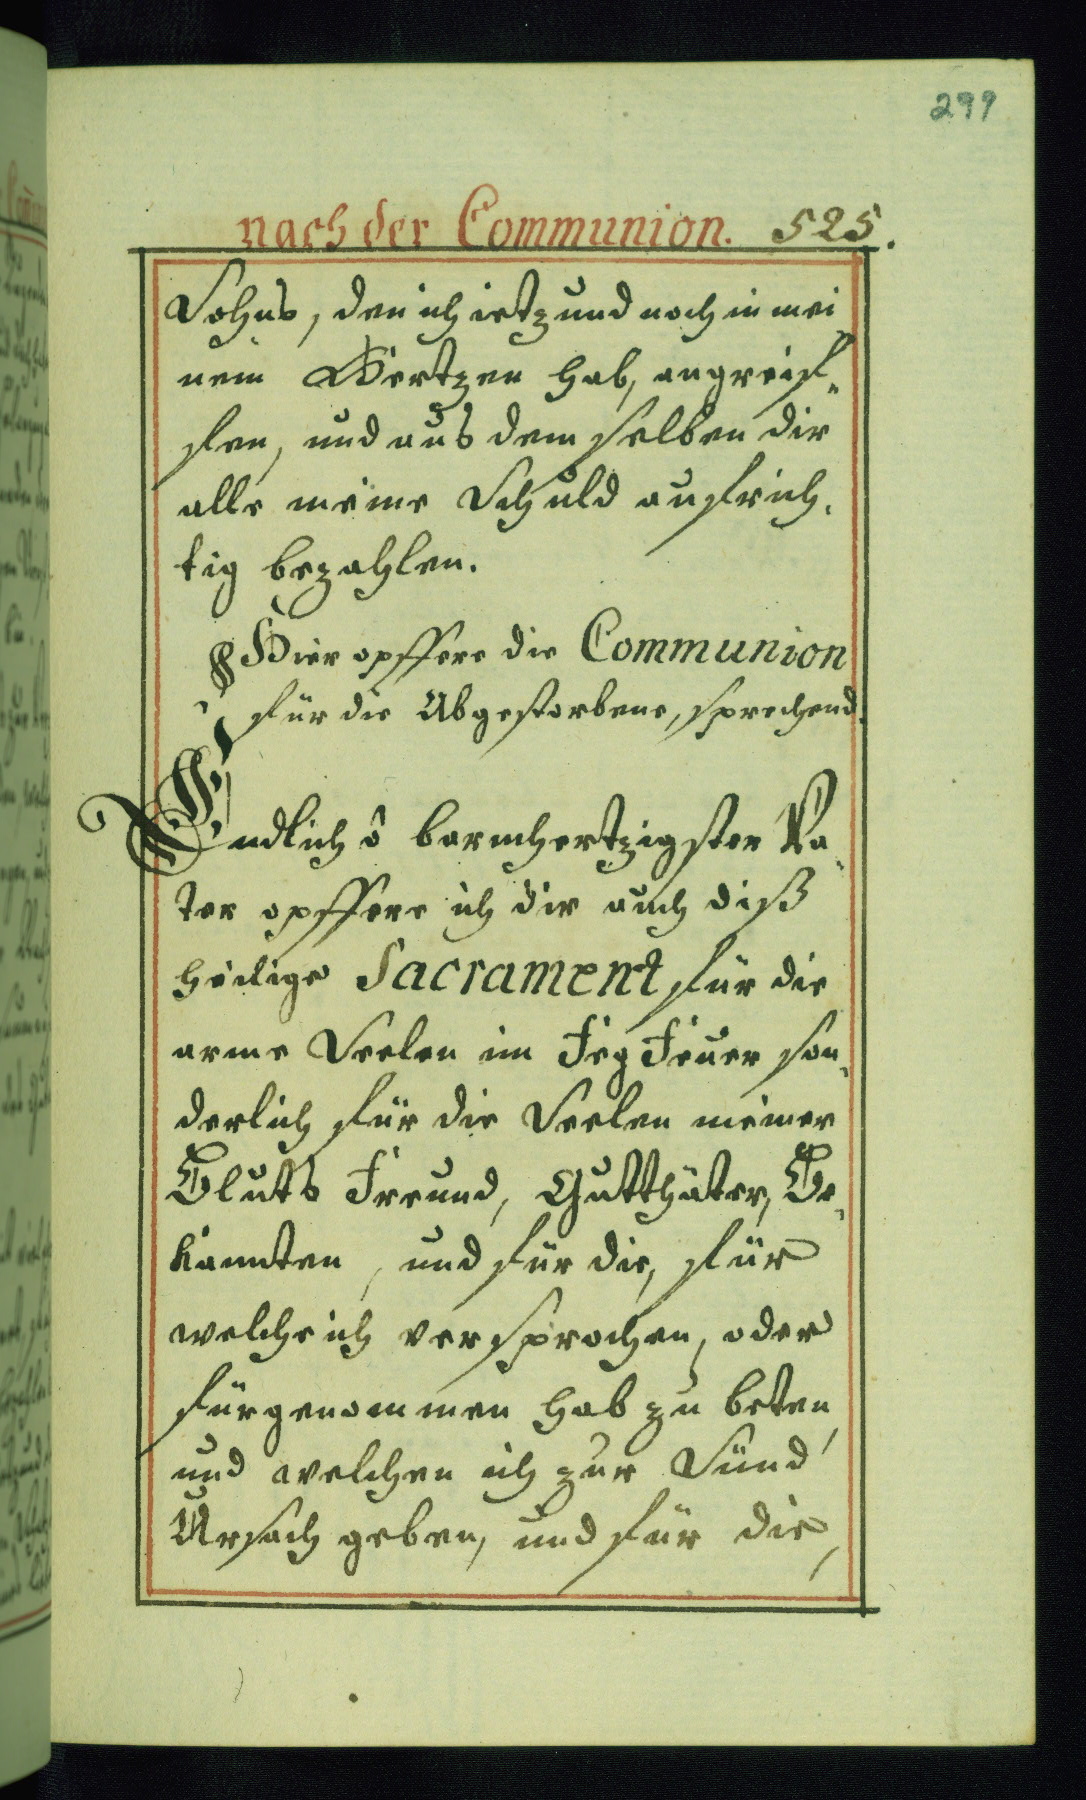 299
nach der Communion. 525.
Sohns, den ich ietzund noch in mei
nem Hertzen hab, angreif-
fen, und aus dem selben dir
alle meine Schuld aufrich-
tig bezahlen.
Hier opffere die Communion
für die Abgestorbene, sprechend.
Endlich ô barmhertzigster Va-
ter opffere ich dir auch diß
heilige Sacrament für die
arme Seelen im FegFeuer son-
derlich für die Seelen meiner
Bluts Freund, Gutthäter, Be-
kannten, und für die, für
welche ich versprochen, oder
fürgenommen hab zu beten,
und welchen ich zur Sünd
Ursach geben, und für die,